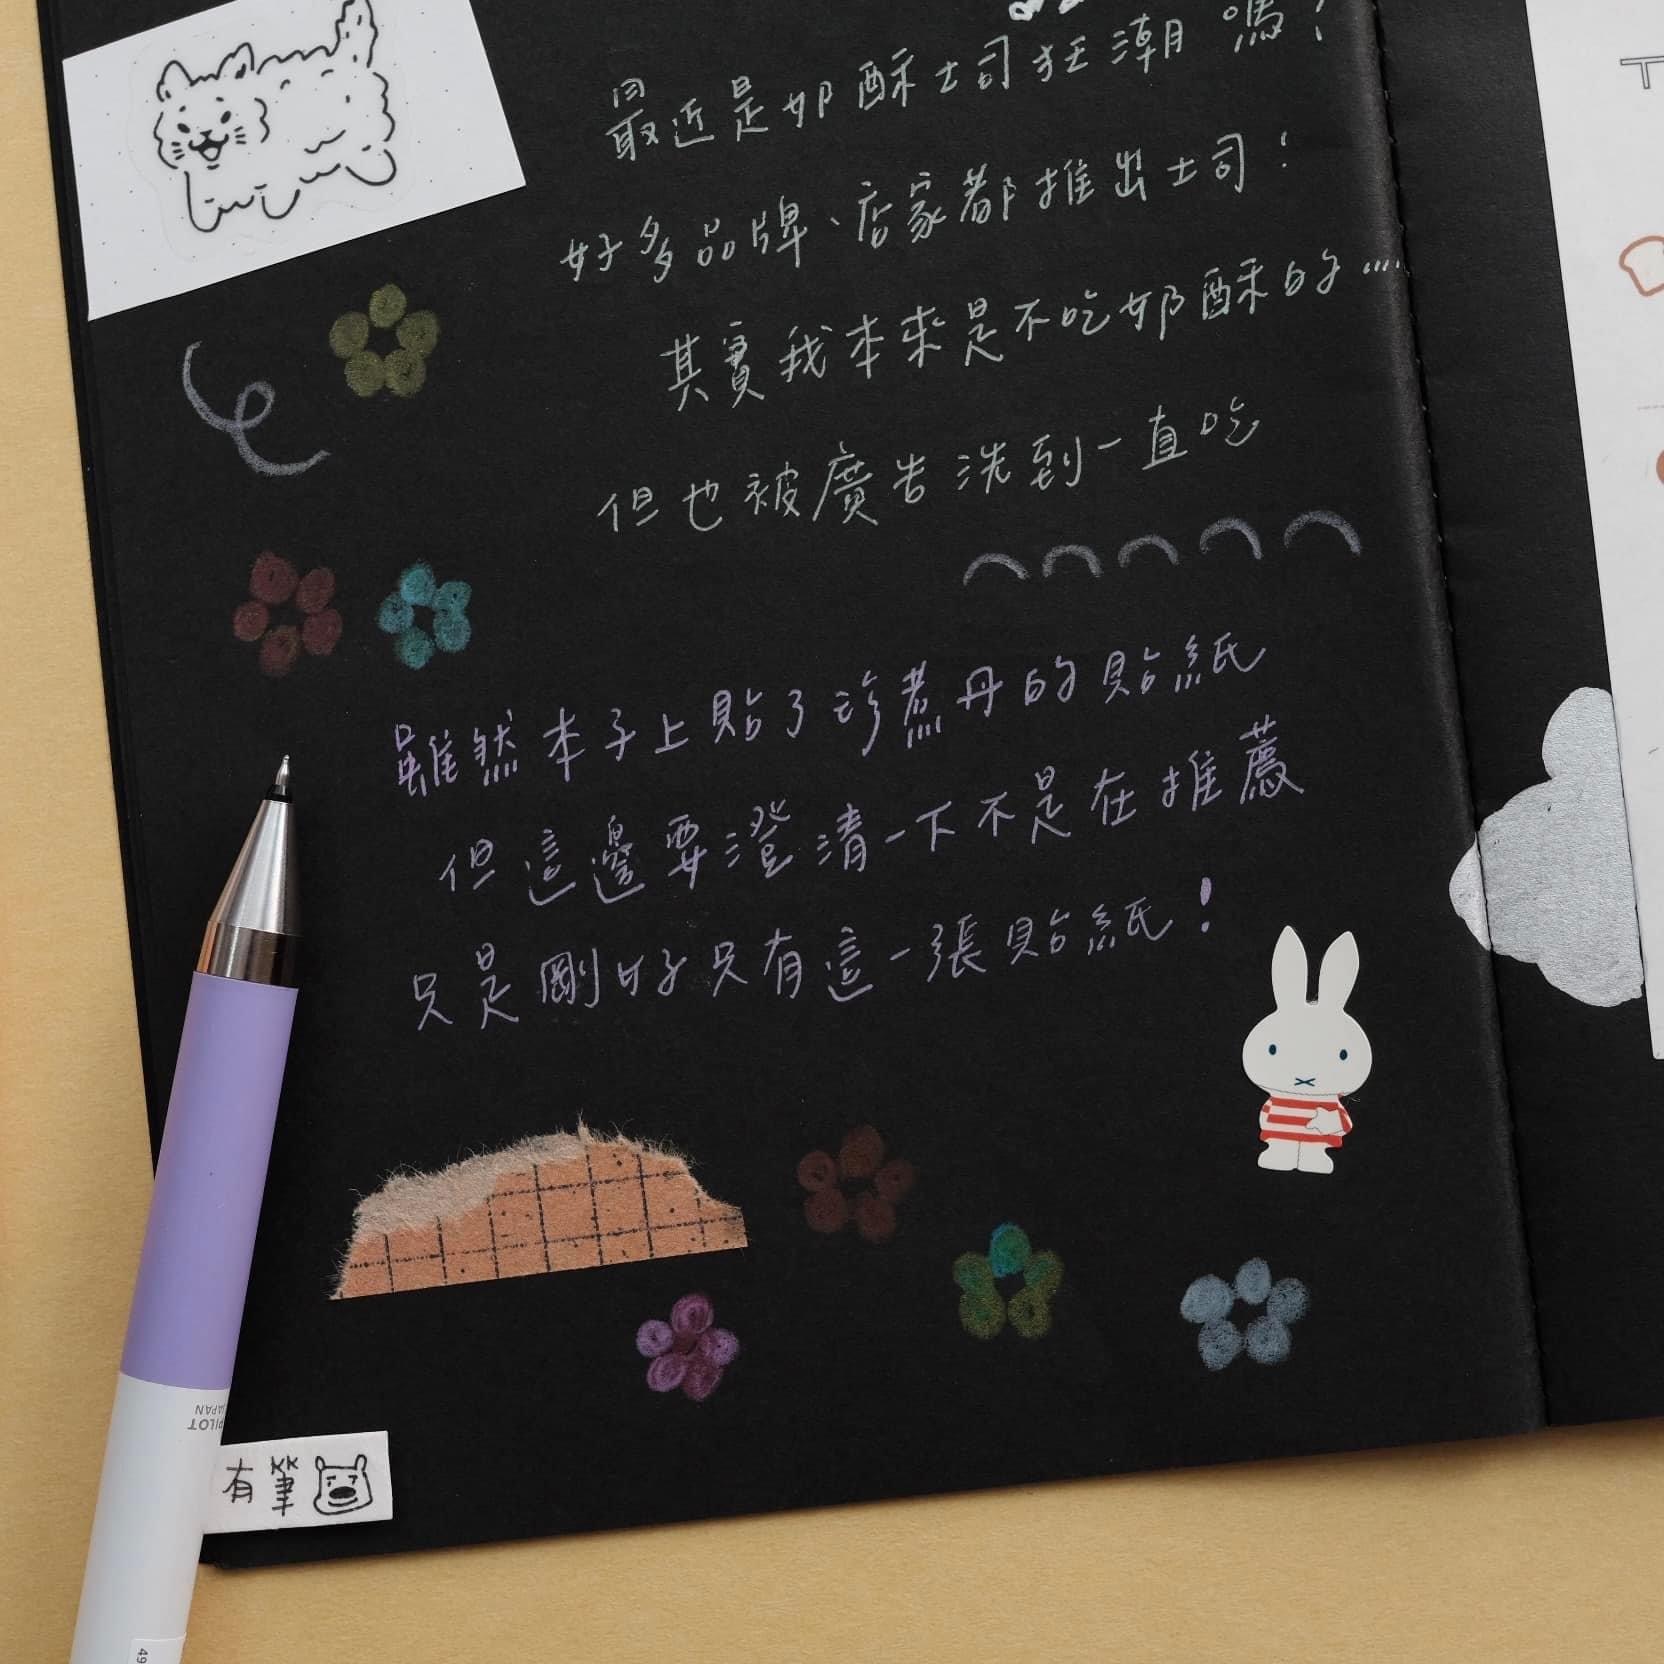 最近是奶酥土司狂潮嗎？
好多品牌、店家都推出土司！
其實我本來是不吃奶酥的...
但也被廣告洗到一直吃
雖然本子上貼了珍煮丹的貼紙
但這邊要澄清一下不是在推薦
只是剛好只有這一張貼紙！
PILOT
JAPAN
有筆
49